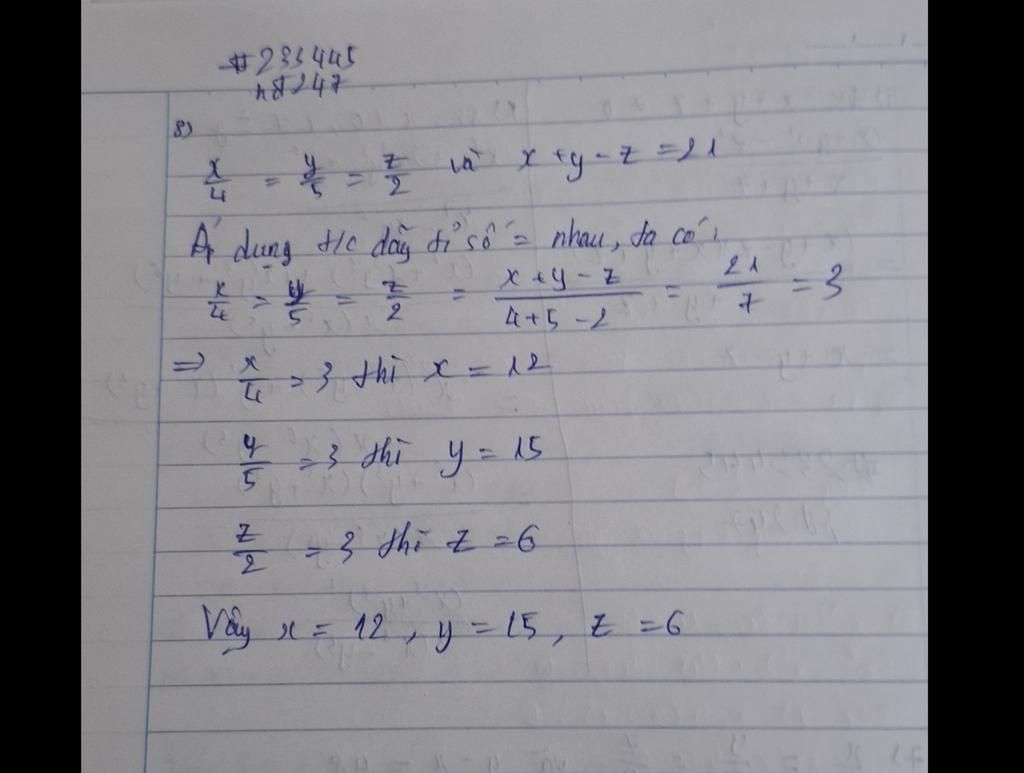 #233445
nd247
8)
x/4 = y/5 = z/2 và x + y - z = 21
Áp dụng t/c dãy tỉ số = nhau, ta có:
x/4 = y/5 = z/2 = (x + y - z)/(4 + 5 - 2) = 21/7 = 3
=> x/4 = 3 thì x = 12
y/5 = 3 thì y = 15
z/2 = 3 thì z = 6
Vậy x = 12, y = 15, z = 6